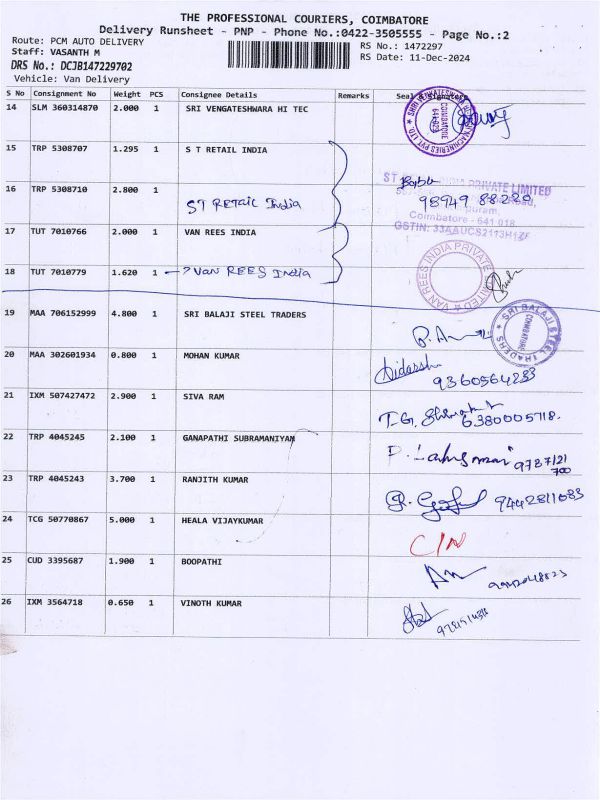 THE PROFESSIONAL COURIERS, COIMBATORE
Delivery Runsheet - PNP - Phone No.:0422-3505555 - Page No.:2
Route: PCM AUTO DELIVERY RS No.: 1472297
Staff: VASANTH M RS Date: 11-Dec-2024
DRS No.: DCJB147229702
Vehicle: Van Delivery
S No Consignment No Weight PCS Consignee Details Remarks Seal & Signature
14 SLM 360314870 2.000 1 SRI VENGATESHWARA HI TEC
COIMBATORE
15 TRP 5308707 1.295 1 S T RETAIL INDIA
16 TRP 5308710 2.800 1 Babu
ST PRIVATE LIMITED
ST RETAIL India 98949 88220
Coimbatore - 641 018.
GSTIN: 33AAUCS2113H1ZF
17 TUT 7010766 2.000 1 VAN REES INDIA
VAN REES INDIA PRIVATE LIMITED
18 TUT 7010779 1.620 1 → ? VAN REES India
19 MAA 706152999 4.800 1 SRI BALAJI STEEL TRADERS
SRI BALAJI STEEL TRADERS
COIMBATORE
20 MAA 302601934 0.800 1 MOHAN KUMAR
9360564283
21 IXM 507427472 2.900 1 SIVA RAM
6380005718.
22 TRP 4045245 2.100 1 GANAPATHI SUBRAMANIYAN
9787121
700
23 TRP 4045243 3.700 1 RANJITH KUMAR
9442811083
24 TCG 50770867 5.000 1 HEALA VIJAYKUMAR
C/N
25 CUD 3395687 1.900 1 BOOPATHI
26 IXM 3564718 0.650 1 VINOTH KUMAR